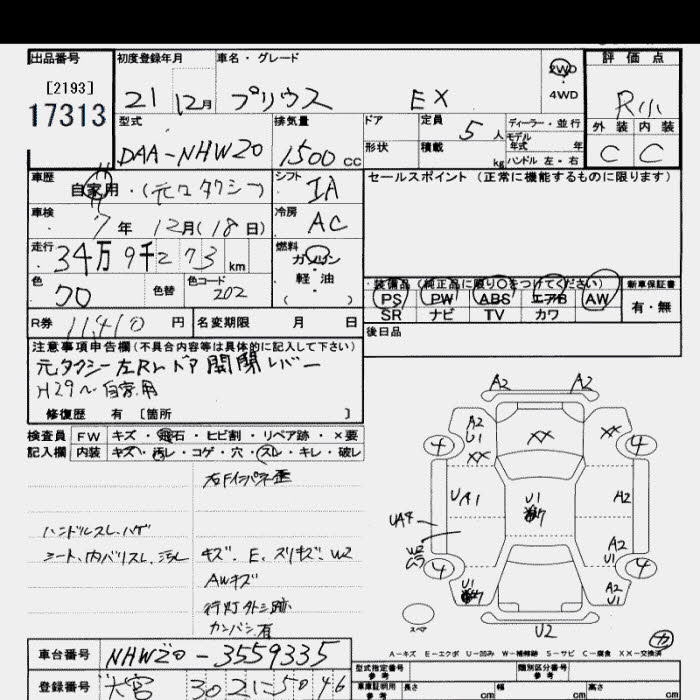 出品番号 初度登録年月 車名・グレード 評価点
[2193]
17313
21 12月 プリウス EX
2WD
4WD
R小
型式 排気量 ドア 定員 5人 ディーラー・並行 外装 内装
DAA-NHW20 1500cc
形状 積載 kg モデル年式 年
ハンドル 左・右
C C
車歴 自家用・(元タクシー) シフト IA セールスポイント (正常に機能するものに限ります)
車検 7年 12月(18日) 冷房 AC
走行 34万9千273km 燃料 ガソリン
軽・油
( )
色 クロ 色替 色コード 202
装備品 (純正品に限り○をつけてください) 新車保証書
PS PW ABS エアB AW 有・無
SR ナビ TV カワ
R券 11,410円 名変期限 月 日
後日品
注意事項申告欄(不具合内容等は具体的に記入して下さい)
元タクシー左Rドア開閉レバー
H29〜自家用
修復歴 有 [箇所 ]
検査員 FW キズ・飛石・ヒビ割・リペア跡・×要
記入欄 内装 キズ・汚レ・コゲ・穴・スレ・キレ・破レ
右Fインパネ歪
ハンドルスレ、ハゲ
シート、内バリスレ、汚レ
キズ、E、スリキズ、W2
AWキズ
行灯外シ跡
カンバン有
A2 A2
A2
U1
XX XX
4 4
XX
UA1 U1 A2
UA4
W2
A2
U1
4 4
U1 U1
スペア
U2
カ
A-キズ E-エクボ U-凹み W-補修跡 S-サビ C-腐食 XX-交換済
車台番号 NHW20-3559335
型式指定番号 類別区分番号
登録番号 大宮 302 に 5046
車庫証明用参考 長さ cm 幅 cm 高さ cm